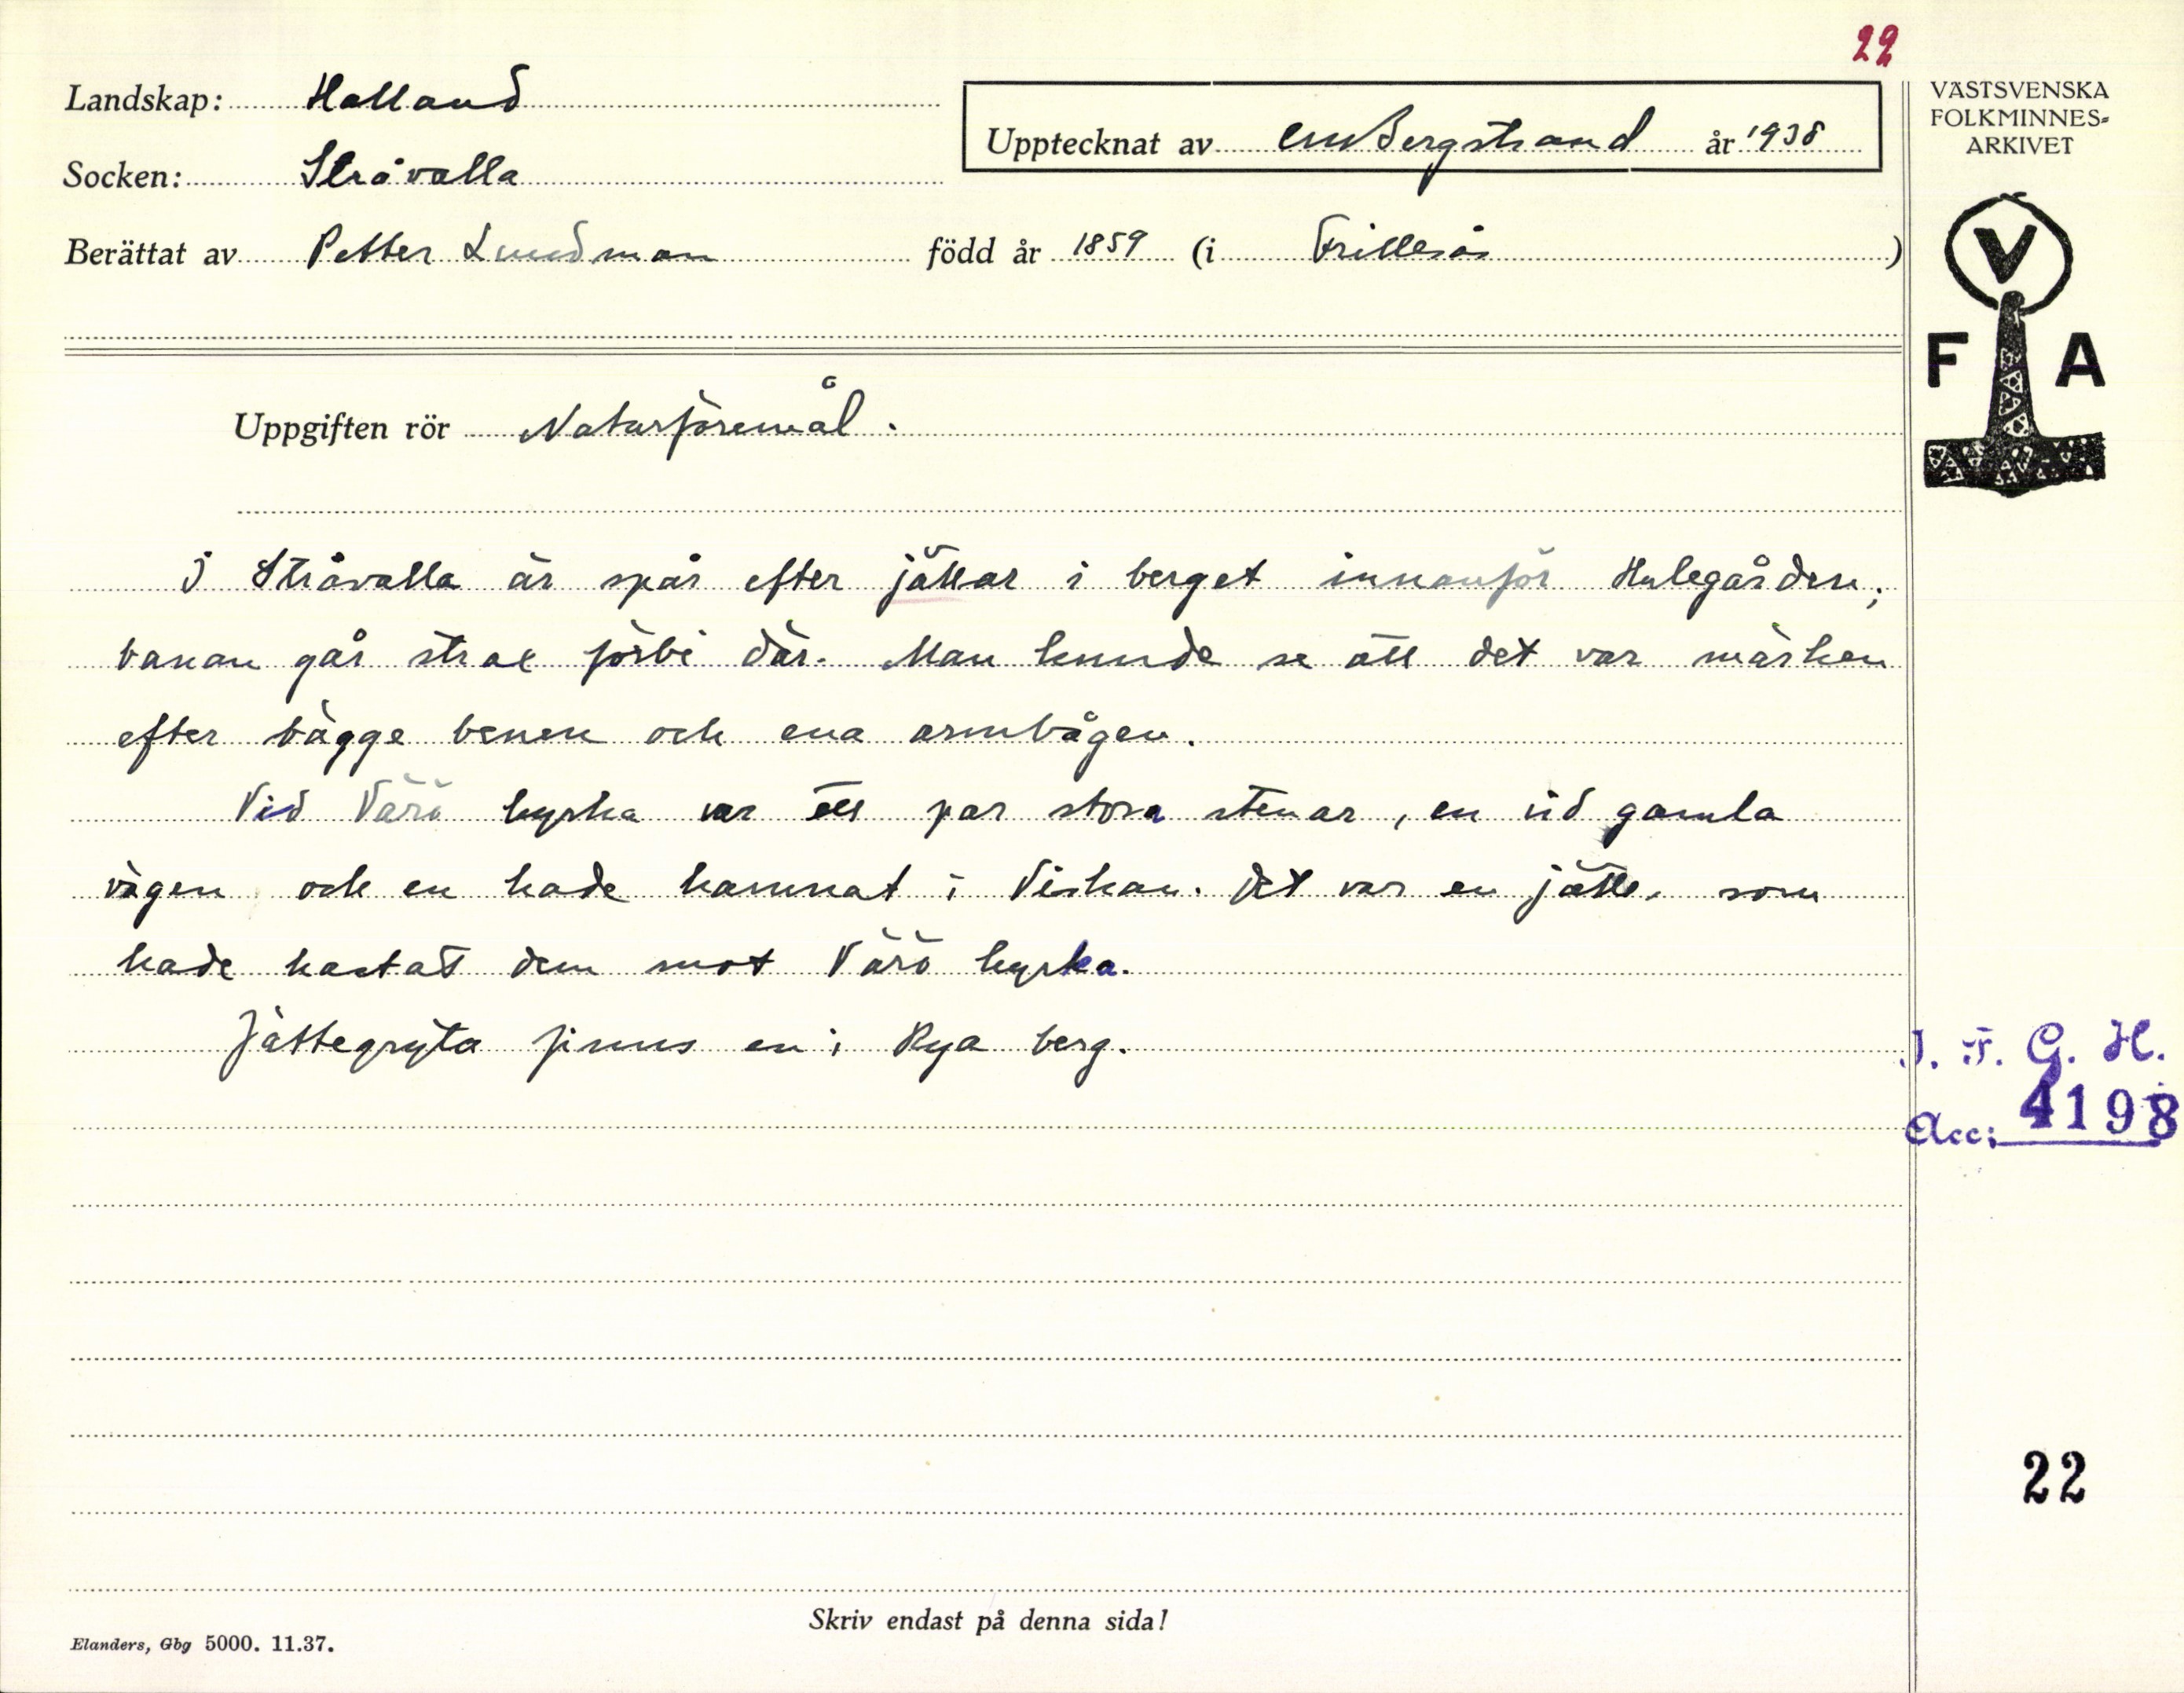 22
Landskap: Halland
Upptecknat av CMBergstrand år 1938
VÄSTSVENSKA
FOLKMINNES-
ARKIVET
Socken: Stråvalla
Berättat av Petter Lundman född år 1859 (i Frillesås )
V
F A
Uppgiften rör Naturföremål.
I Stråvalla är spår efter jättar i berget innanför Hulegården;
banan går strax förbi där. Man kunde se att det var märken
efter bägge benen och ena armbågen.
Vid Värö kyrka var ett par stora stenar, en vid gamla
vägen och en hade hamnat i Viskan. Det var en jätte, som
hade kastat dem mot Värö kyrka.
Jättegryta finns en i Rya berg.
I. F. G. H.
Acc: 4198
22
Skriv endast på denna sida!
Elanders, Gbg 5000. 11.37.